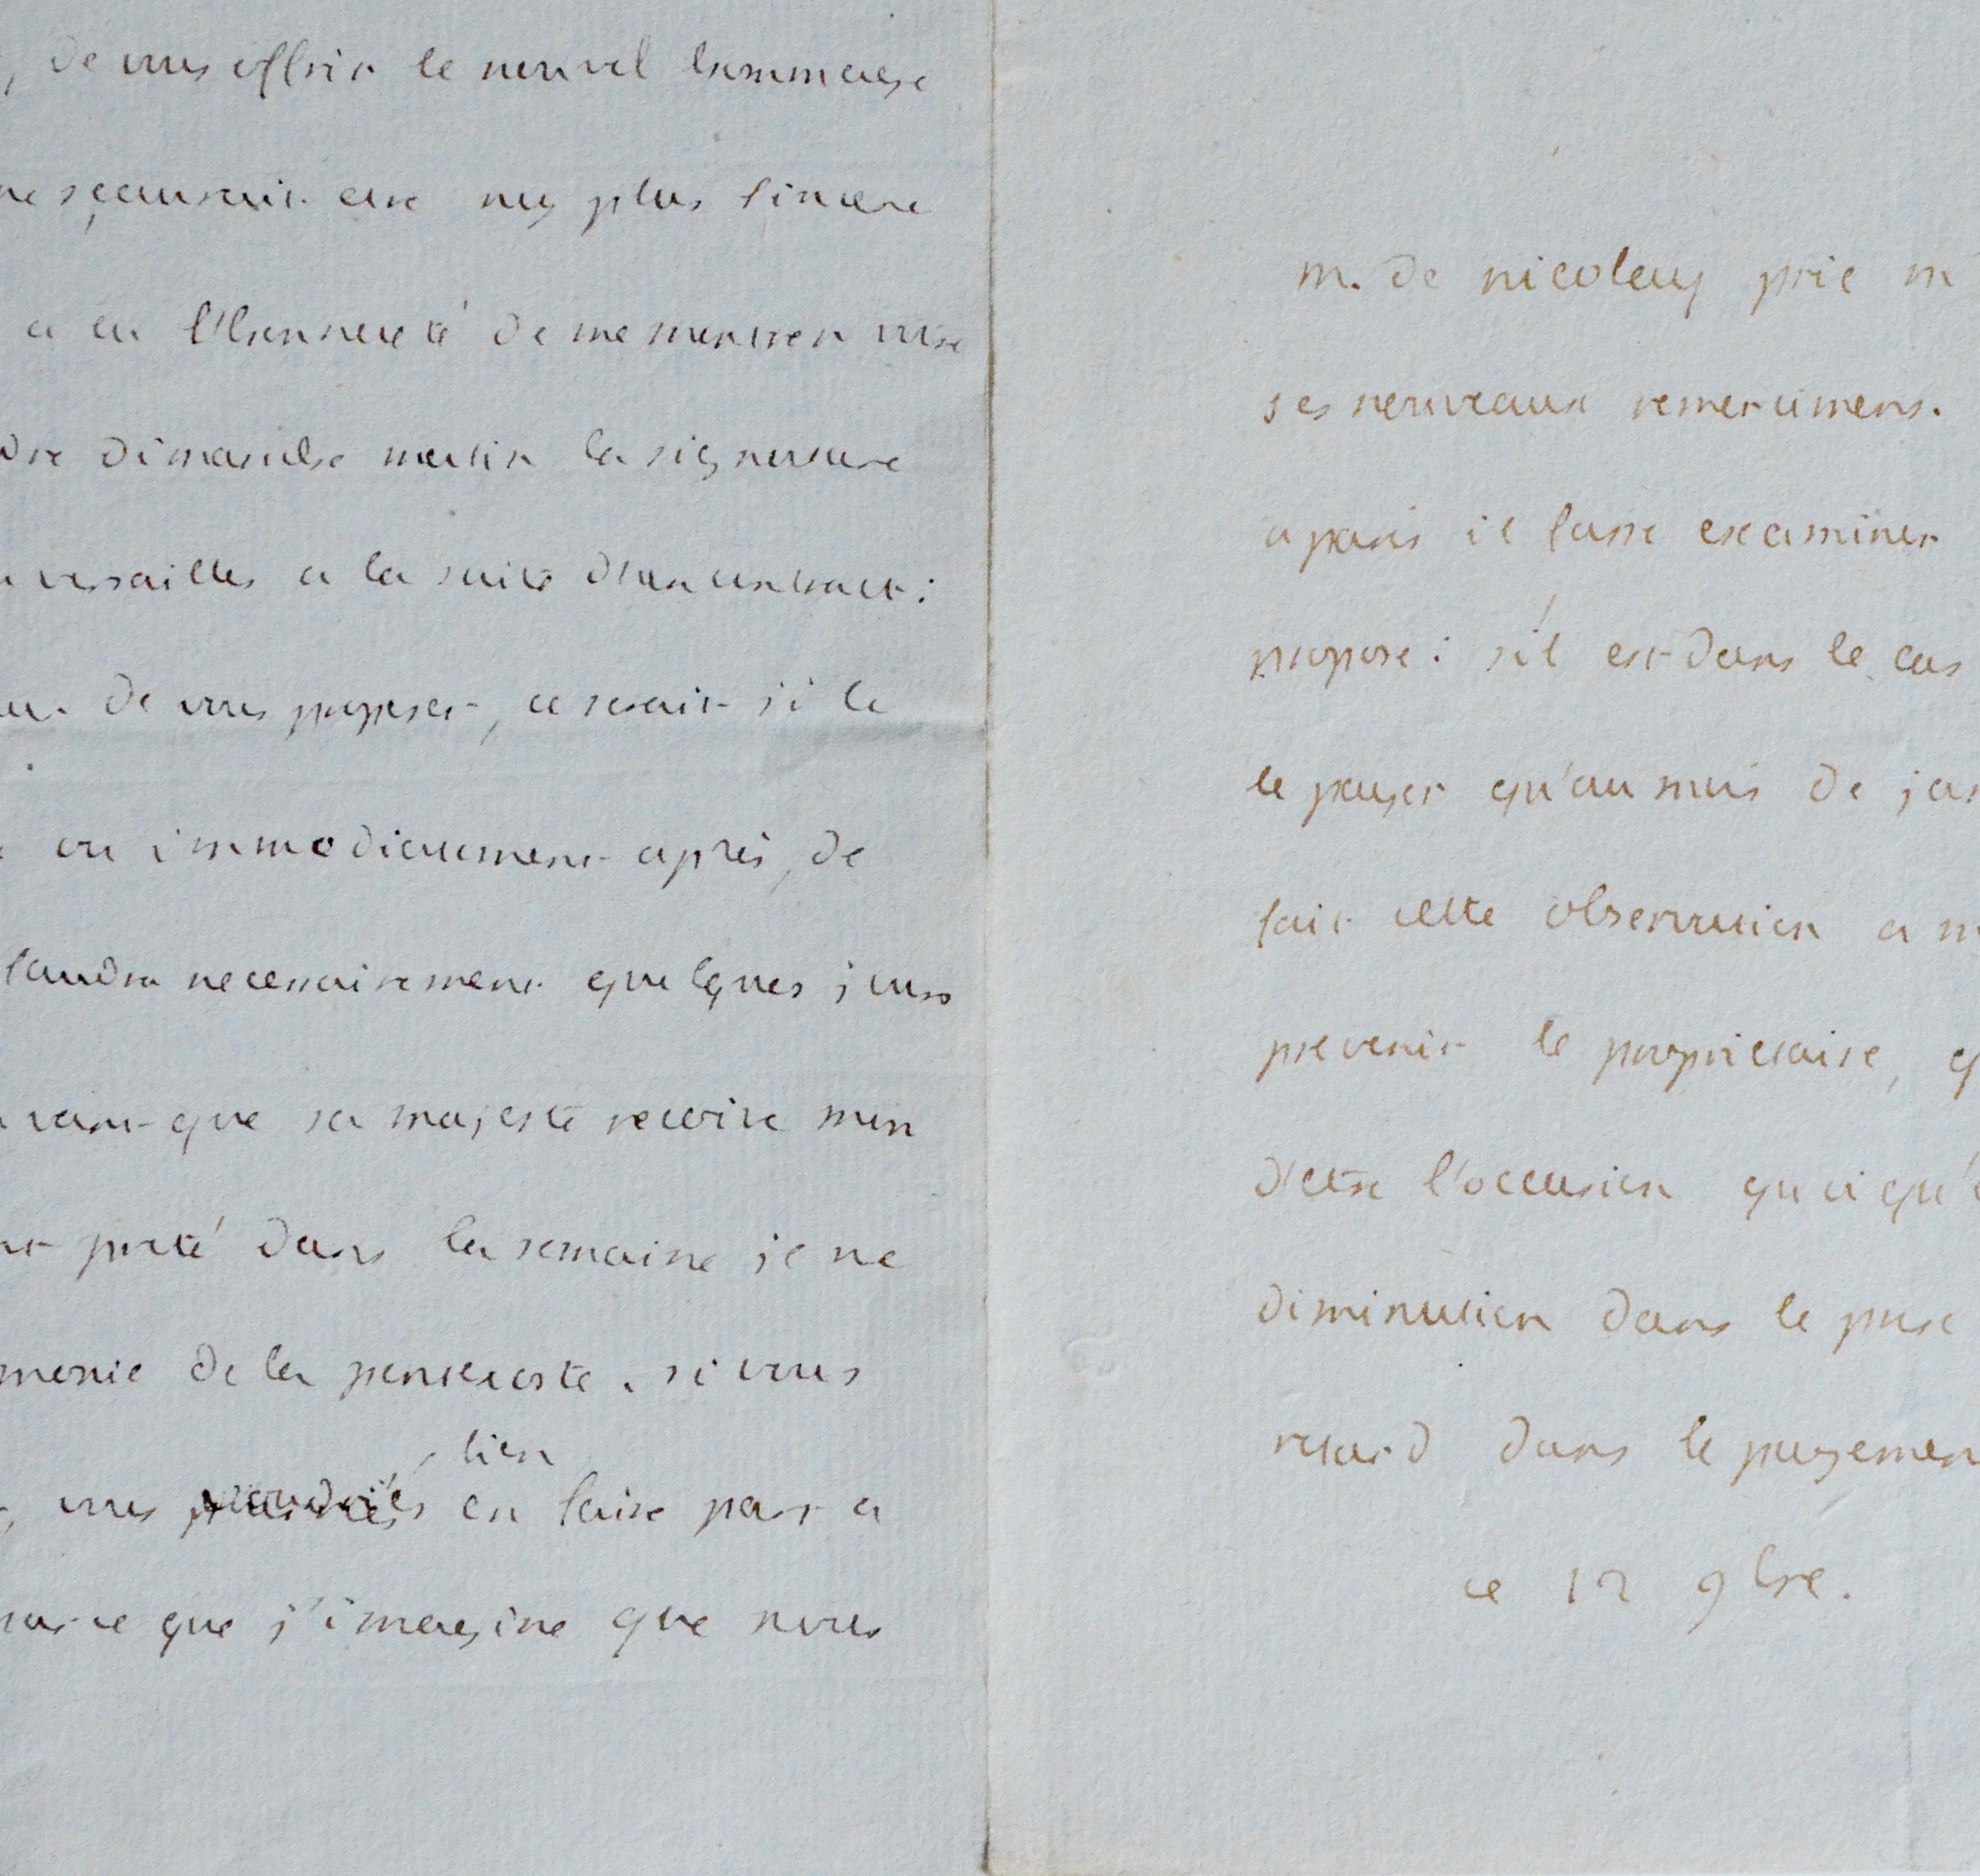 , de vous offrir le nouvel hommage
ne sçauroit etre ny plus sincere
a eu l'honneteté de me montrer votre
dre dimanche matin la signature
versailles a la suite d'un contract :
de vous proposer, ce seroit si le
ou immediatement après, de
faudra necessairement quelques jours
avant que sa majesté recoive mon
preté dans la semaine je ne
monie de la pentecoste. si vous
bien
, vous voudriés en faire part a
parce que j'imagine que nous
m. de nicolay prie m
ses nouveaux remercimens.
a paris il fasse examiner
propose : s'il est dans le cas
le payer qu'au mois de jan
fait cette observation a m
prevenir le proprietaire, q
d'etre l'occasion quoiqu'
diminution dans le prix
retard dans le payemen
ce 12 9bre.